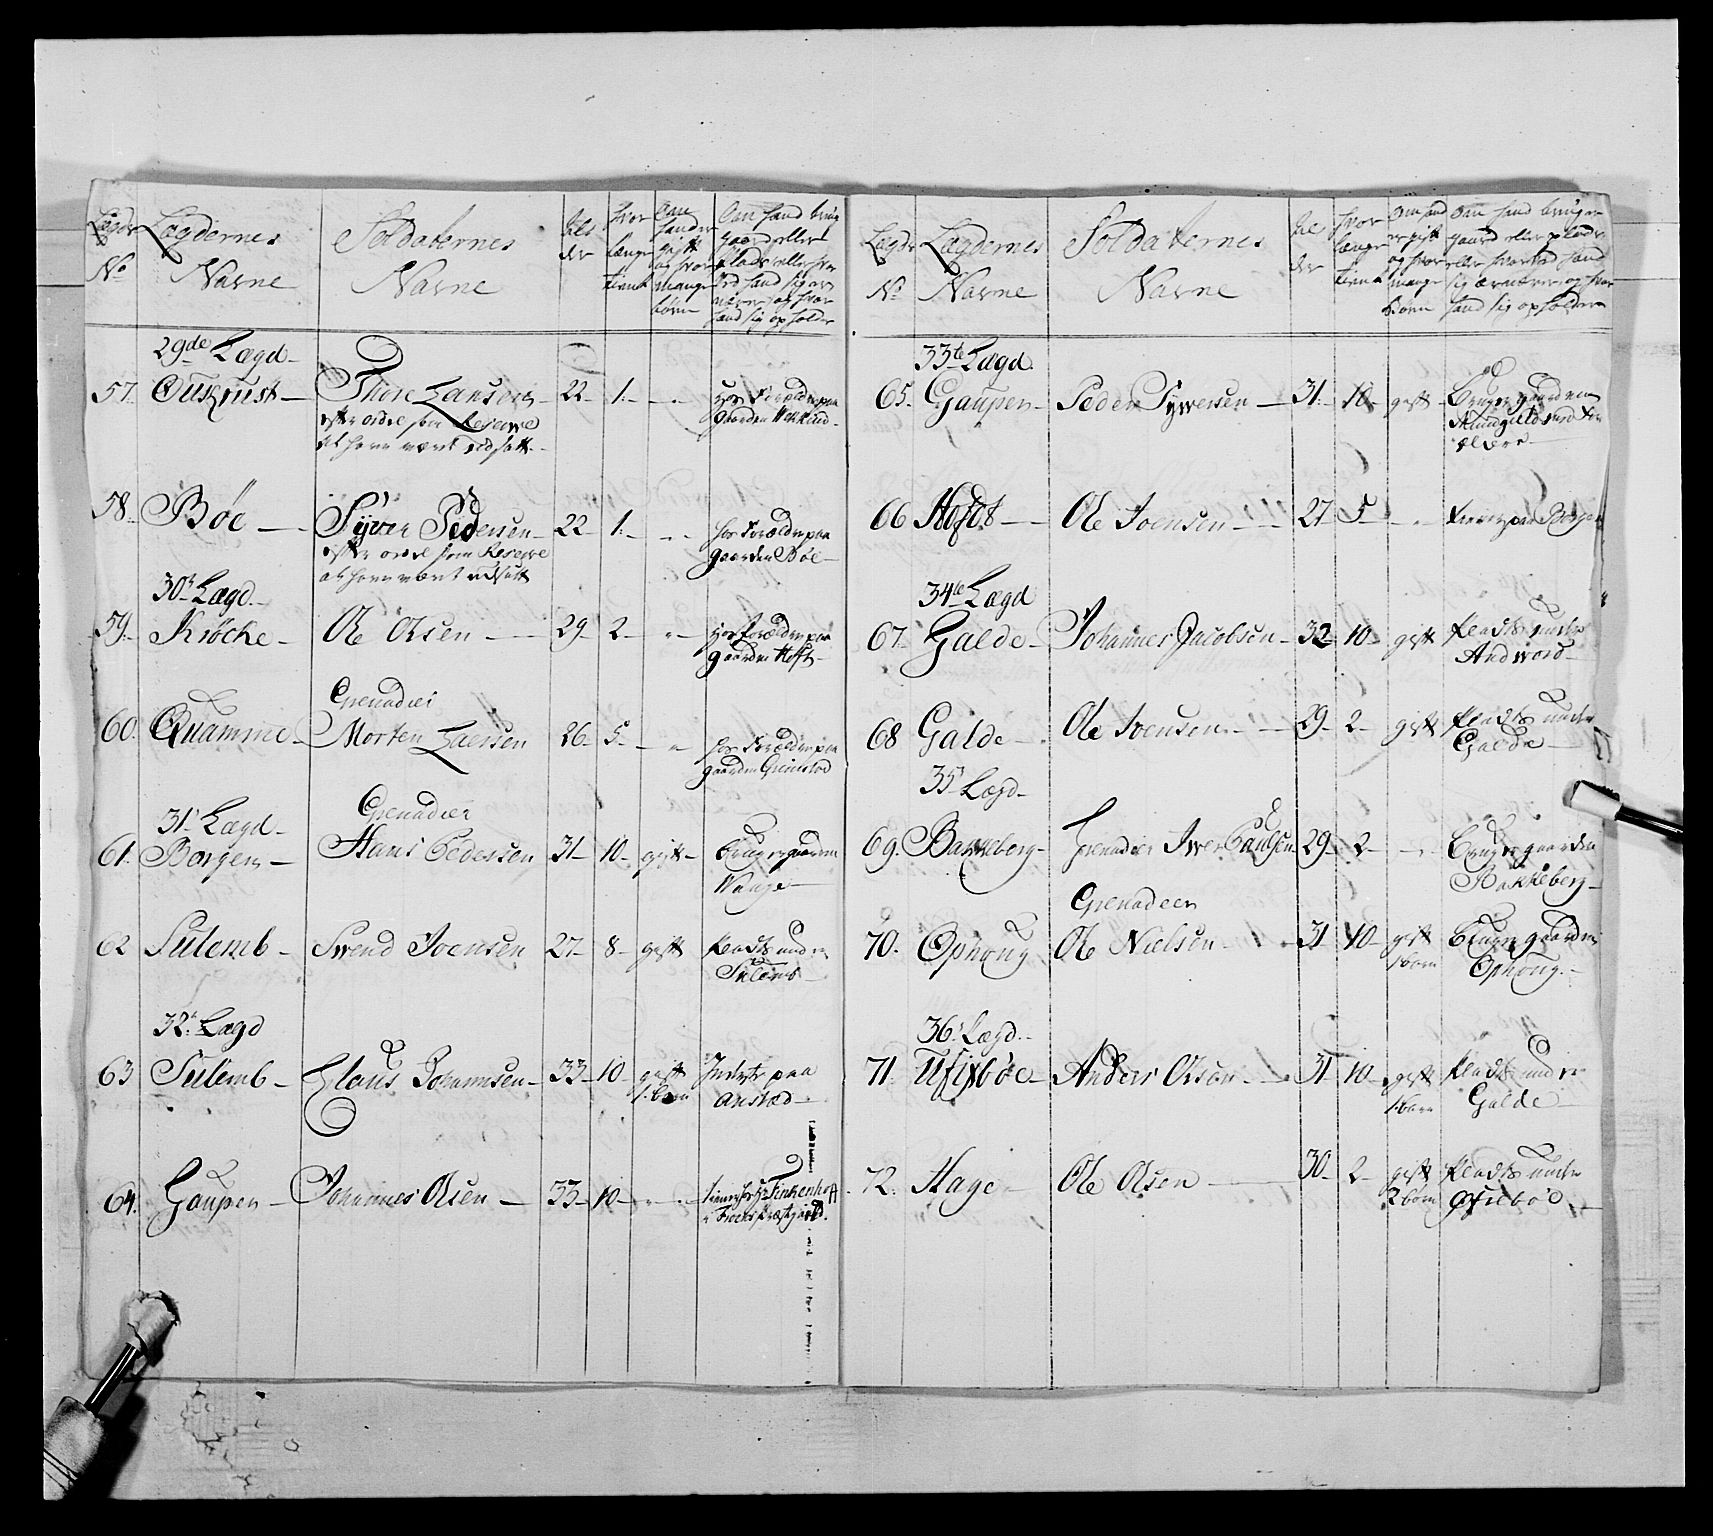 Lægds No
Lægdernes Navne
Soldaternes Navne
Alder
hvor længe tient
Om hand er gift og hvor mange børn
Om hand bruger gaard eller plads eller hvor ved hand sig ernærer og hvor hand sig opholder
29de Lægd
57. Thore Larsen 22 1. hos Forældre paa gaarden
efter ordre som Reserve
at have været udsatt
58. Bøe Syver Pedersen 22 1. hos Forældre paa gaarden Bøe
efter ordre som Reserve
at have været udsatt
30t Lægd
59. Krøcke Ole Olsen 29 2 hos Forældre paa gaarden Hoft
Grenadeer
60. Quamme Morten Larsen 26 5 hos Forældre paa gaarden Grimstad
31t Lægd
Grenadeer
61. Borgen Hans Pedersen 31 10 gift bruger gaarden Wange
62 Sulemb Svend Joensen 27 8 gift Plads under Sulemb
32t Lægd
63 Sulemb Claus Johannsen 33 10 gift 1. barn Inderste paa Onstad
64. Gaupen Johannes Olsen 33 10 tiener hos Hr Finkenhoff i præstegaard.
Lægds No
Lægdernes Navne
Soldaternes Navne
Alder
hvor længe tient
Om hand er gift og hvor mange Børn
Om hand bruger gaard eller plads eller hvorved hand sig ernærer og hvor hand sig opholder
33te Lægd
65. Gaupen Peder Sywersen 31 10 gift Bruger gaarden
66 Hofdt Ole Joensen 27 5 tiener paa Borgen
34te Lægd
67. Galde Johannes Jacobsen 32 10 gift Plads under Andword
68 Galde Ole Joensen 29 2 gift Plads under Galde
35t Lægd
69. Bakkeberg Grenadeer Iver Paulsen 29 2 Bruger gaarden Bakkeberg
Grenadeer
70. Ophoug Ole Nielsen 31 10 gift 1 barn Bruger gaarden Ophoug.
36t Lægd
71. Anders Olsen 31 10 gift 1. barn Plads under Galde
72. Hage Ole Olsen 30 2 gift 2 børn Plads under